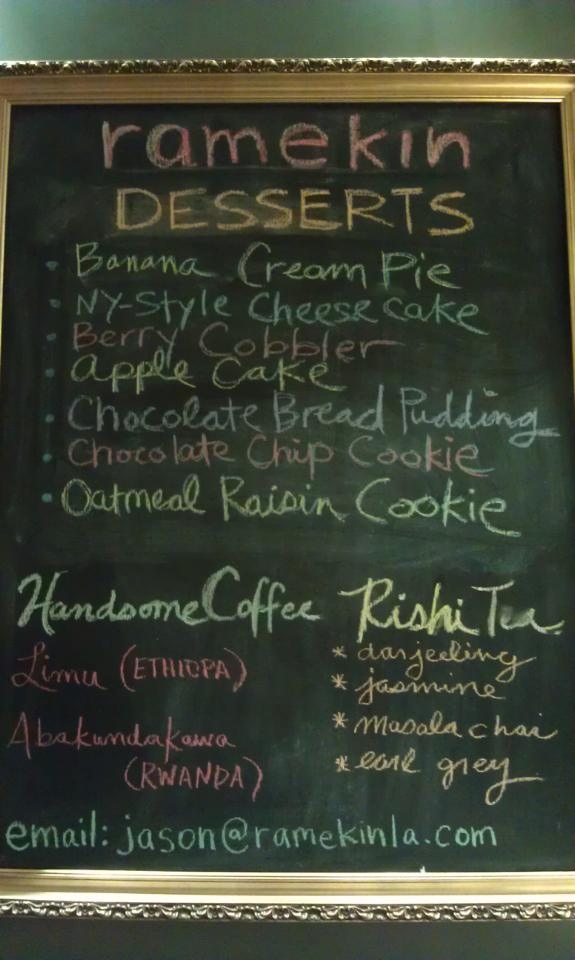 ramekin
DESSERTS
• Banana Cream Pie
• NY-Style Cheesecake
• Berry Cobbler
• Apple Cake
• Chocolate Bread Pudding
• Chocolate Chip Cookie
• Oatmeal Raisin Cookie
Handsome Coffee
Limu (ETHIOPA)
Abakundakawa
(RWANDA)
Rishi Tea
* darjeeling
* jasmine
* masala chai
* earl grey
email: jason@ramekinla.com